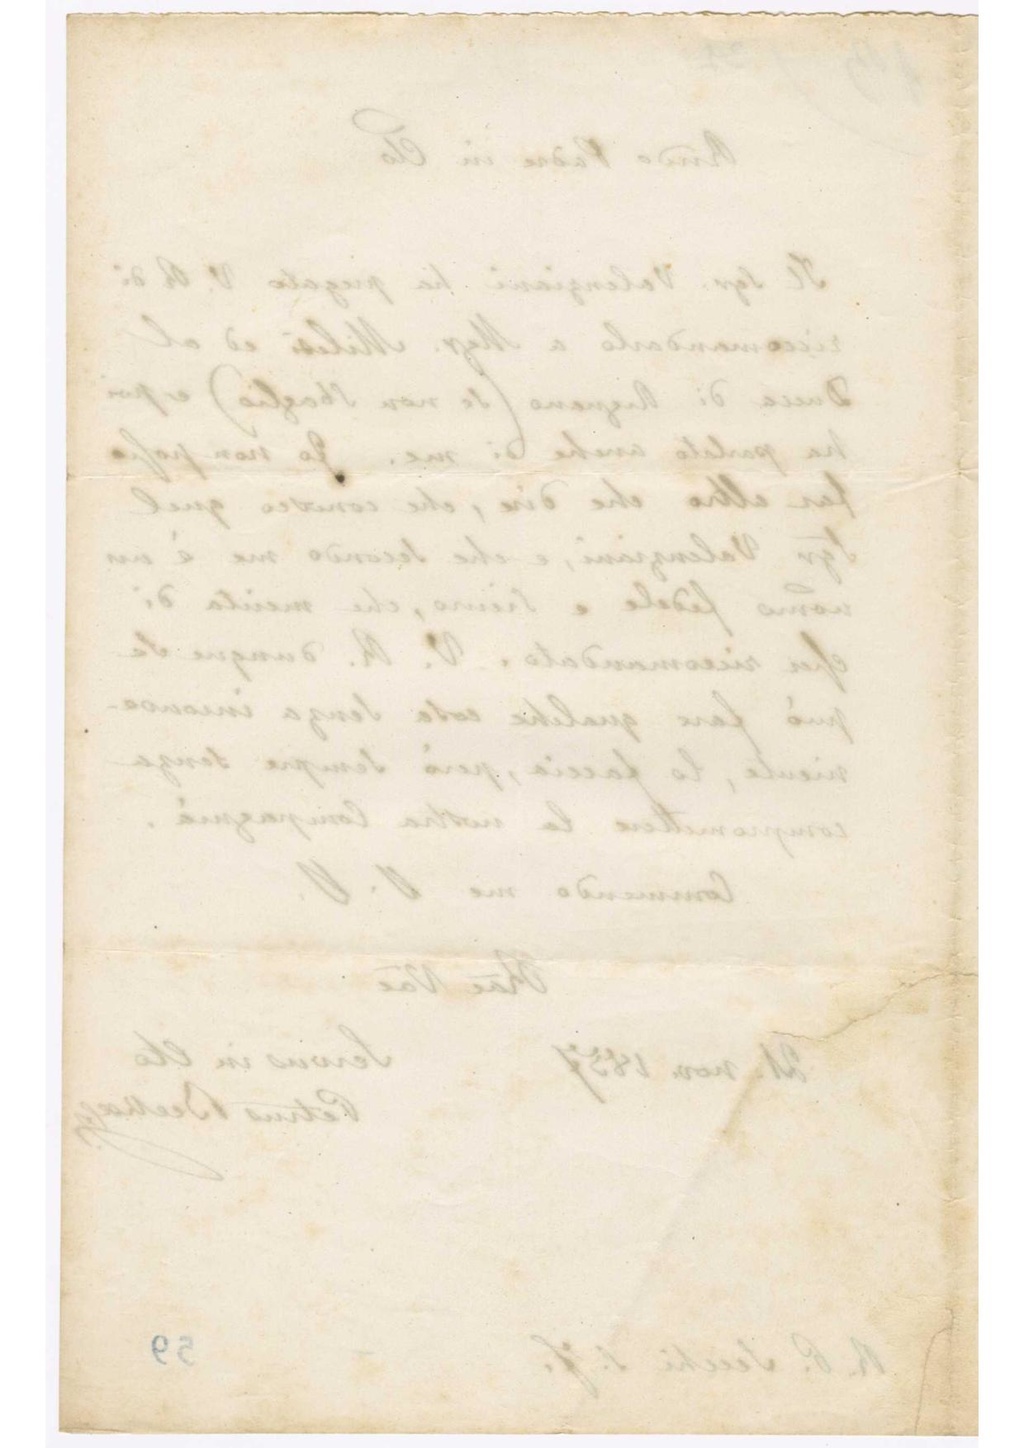 Rndo Padre in Cto
Il Sgr. Valenziani ha pregato V. R di
riccomandarlo a Mgr. Milesi ed al
Duca di Rignano (se non sbaglio) e poi
ha parlato anche di me. Io non posso
far altro che dire, che conosco quel
Sgr Valenziani, e che secondo me è un
uomo fedele e sicuro, che merita di
esser riccomandato. V. R. dunque se
può fare qualche cosa senza inconve-
niente, lo faccia, però sempre senza
compromettere la nostra Compagnia.
Commendo me
Rae Vae
21. nov. 1857
Servus in Cto
Petrus Beckx
R. P. Secchi S. J.
59